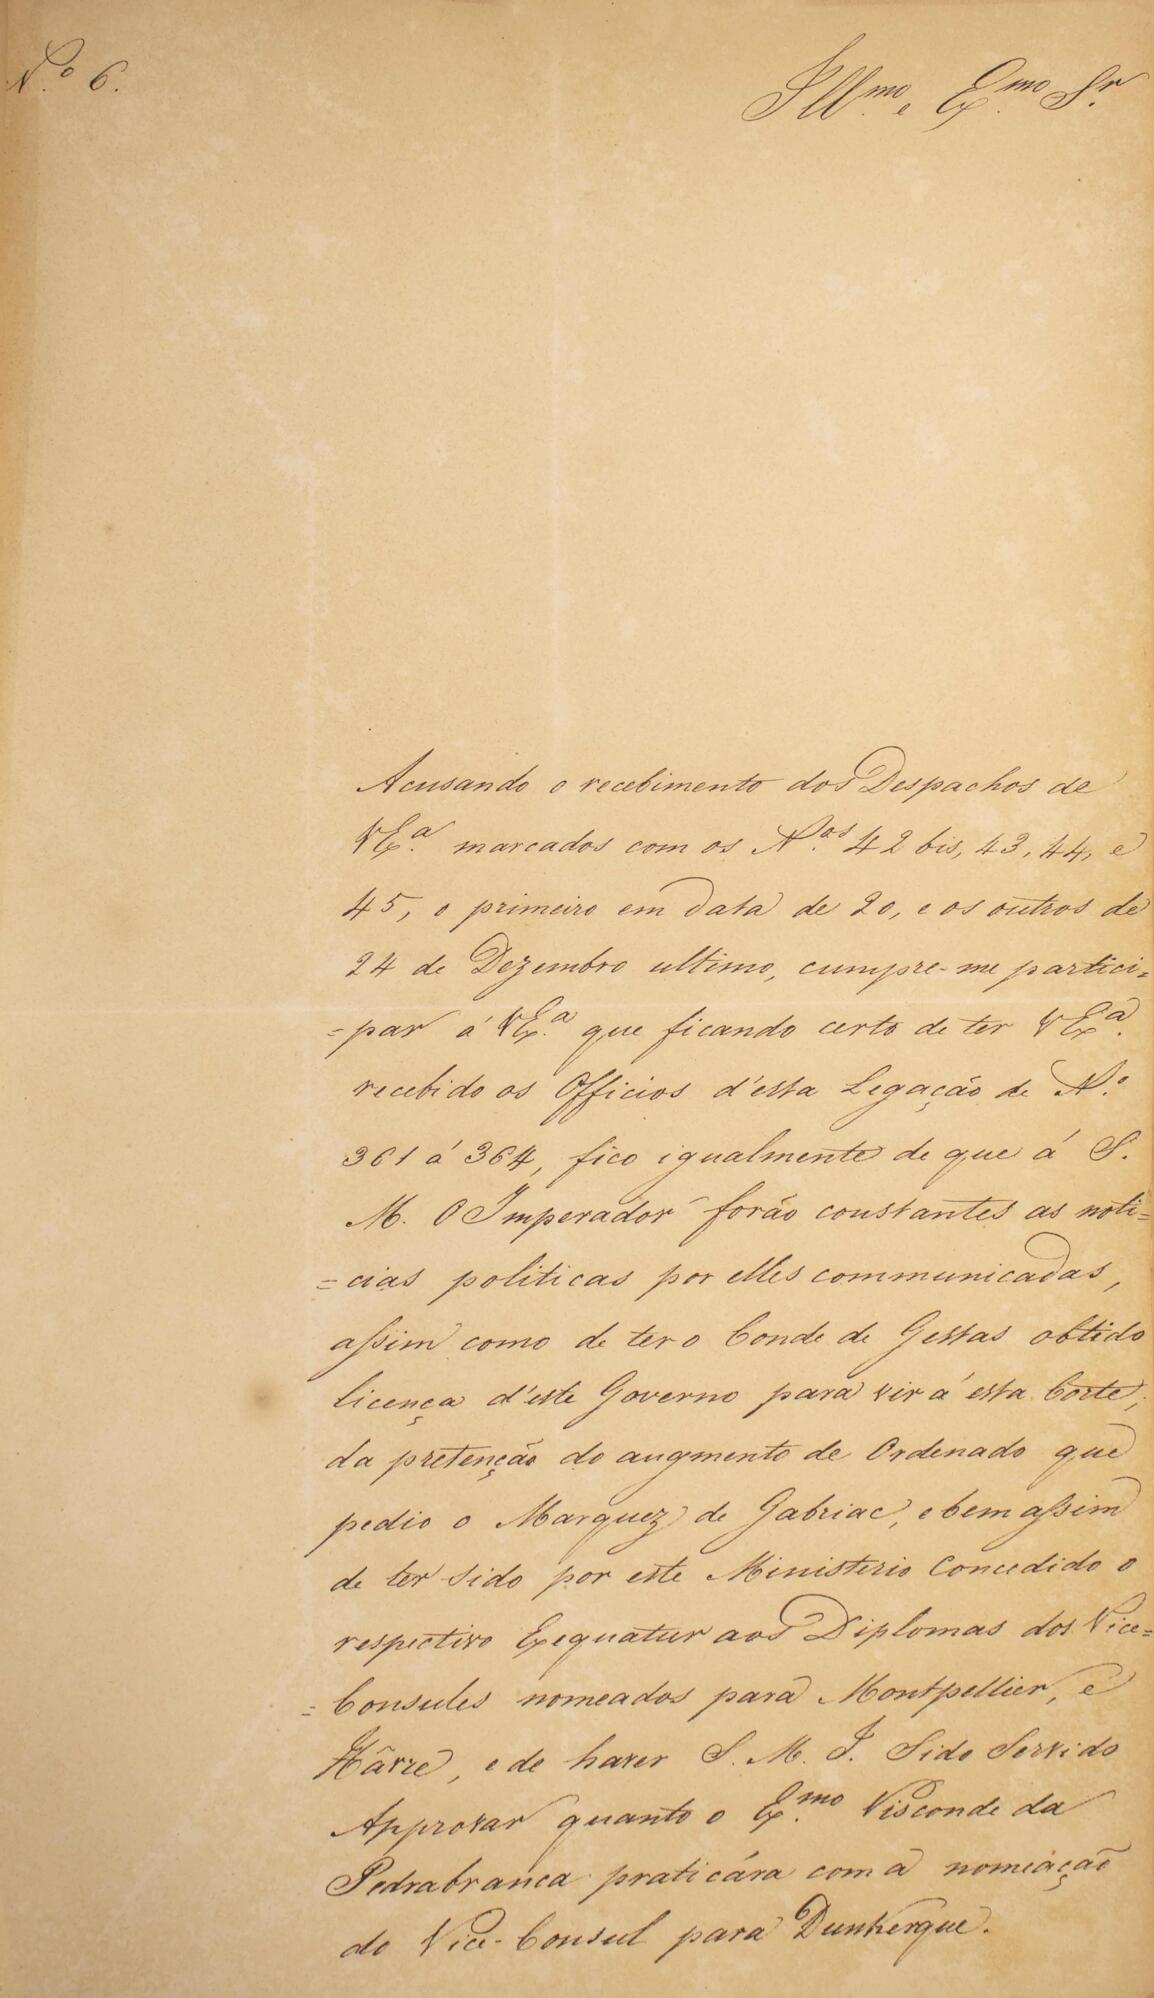 N.º 6.
Ill.mo e Ex.mo Sr.
Acusando o recebimento dos Despachos de
VEx.ª marcados com os N.os 42 bis, 43, 44, e
45, o primeiro em data de 20, e os outros de
24 de Dezembro ultimo, cumpre-me partici=
=par á VEx.ª que ficando certo de ter VEx.ª
recebido os Officios d'esta Legação de N.º
361 á 364, fico igualmente de que á S.
M. O Imperador forão constantes as noti=
=cias politicas por elles communicadas,
assim como de ter o Conde de Gestas obtido
licença d'este Governo para vir á esta Corte,
da pretenção do augmento de Ordenado que
pedio o Marquez de Gabriac, e bem assim
de ter sido por este Ministerio Concedido o
respectivo Exequatur aos Diplomas dos Vice=
=Consules nomeados para Montpellier, e
Hâvre, e de haver S. M. I. Sido Servido
Approvar quanto o Ex.mo Visconde da
Pedrabranca praticára com a nomeação
do Vice-Consul para Dunkerque.